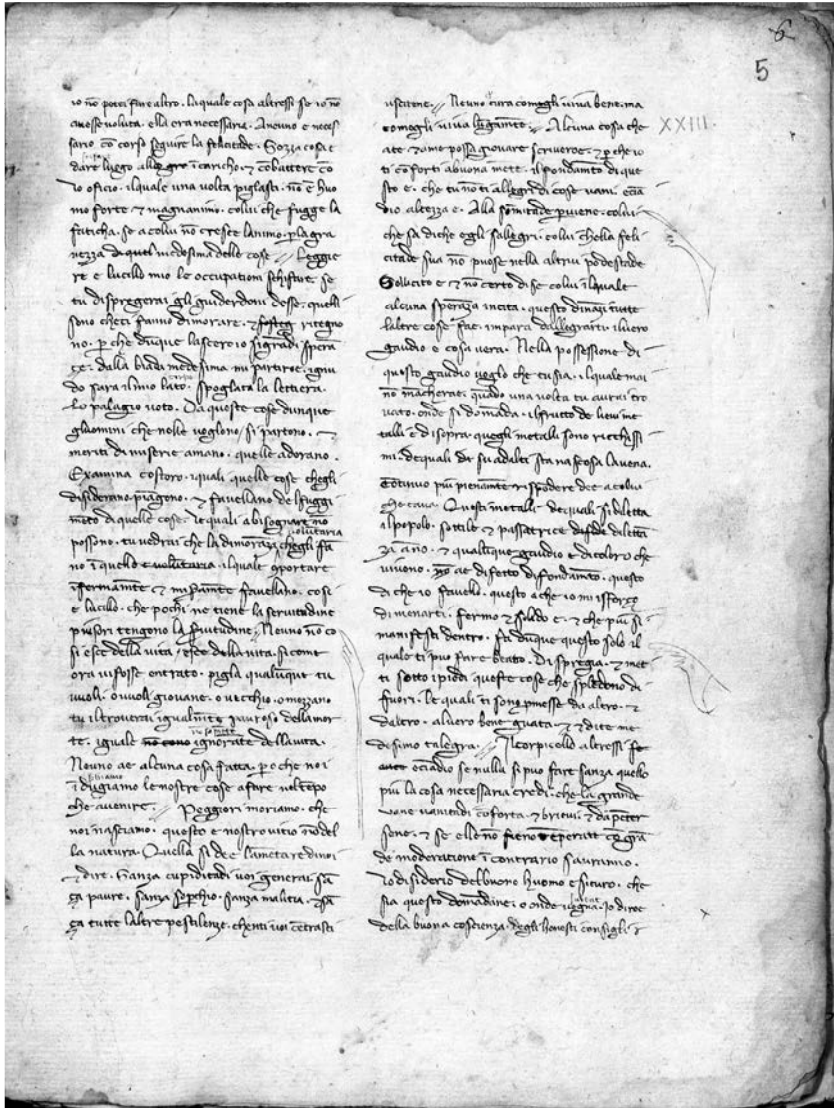 6
5
io nō potei fare altro. la quale cosa altressi se io nō
avesse voluta. ella era necessaria. A neuno e neces
sario cō corso seguire la felicitade. Sozza cosa e
dare luogo īcaricho. & cōbattere cō
lo oficio. il quale una volta pigliasti. nō e huo
mo forte & magnanimo. colui che fugge la
faticha. se a colui nō cresce lanimo. p la gra
vezza di quel medesima delle cose // Leggie
re e lucillo mio le occupationi schifare. se
tu dispregerai gli guiderdoni desse. quelli
sono che ci fanno dimorare. & ritegno
no. p che dūque lascero io sigrādi sperā
çe. dalla biada medesima mi partiroe. ignu
do sara il mio lato. spogliata la lettiera.
Lo palagio voto. Da queste cose dunque
gluomini che nolle voglono si partono. &
meriti di miserie amano. quelle adorano.
Examina costoro. i quali quelle cose chegli
disiderano piāgono. & favellano del fuggi
mēto di quelle cose. le quali a bisognare nō
possono. tu vedrai che la dimorāza chegli fā
voluntaria
no ī quello e voluntaria. il quale portare
īfermamēte & miseramēte favellano. cosi
e lucillo. che pochi ne tiene la servitudine
piusori tengono la servitudine // Neuno nō co
si esce della vita / esce della vita. si come
ora vi fosse entrato. pigla qualūque tu
vuoli. o vuoli giovane. o vecchio. o mezzano
tu il troverai igualmēte pauroso della mor
te. iguale no cono ignorāte della vita.
Neuno ae alcuna cosa fatta. p o che noi
īdugiamo le nostre cose a fare nel tēpo
che avenire. // Peggiori moriamo. che
noi nasciamo. questo e nostro vitio nō del
la natura. Quella si dee lamētare di noi
& dire. Sanza cupiditadi voi generai. sā
ça paure. sanza soperchio. sanza malitia. & sā
ça tutte laltre pestilenze. chenti voi cētrasti
uscitene. // Neuno cura comegli viva bene. ma
comegli viva lūgamēte // Alcuna cosa che
XXIII.
a te & a me possa giovare scriveroe. & p che io
ti cōforti a buona mēte. il fondamēto di que
sto e. che tu no ti allegri di cose vane. ecia
dio altezza e. Alla sōmitade pviene. colui
che sa di che egli sallegri. colui chella feli
citade sua nō puose nella altrui podestade
Sollicito e & nō certo di se colui il quale
alcuna sperāza incita. questo dināzi a tutte
laltre cose fae. impara dallegrarti. il vero
gaudio e cosa vera. Nella possessione di
questo gaudio voglo che tu sia. il quale mai
nō mācherae. quādo una volta tu avrai tro
vato. onde si domāda. il frutto de lievi me
talli e di sopra. quegli metalli sono ricchissi
mi. de quali di su ad alti sta nascosa la vena.
cōtinuo piu pienamēte rispōdere dee a colui
che cava. Questi metalli de quali si diletta
il popolo. sottile & passatrice dilettā
za āno. & qualūque gaudio e di coloro che
vivono. nō ae difetto di fondamēto. questo
di che io favello. questo a che io mi isforço
di menarti. fermo & soldo e. & che piu si
manifesta dentro. fa dūque questo solo il
quale ti puo fare beato. Dispregia. & met
ti sotto i piedi queste cose che splēdono di
fuori. le quali ti sono pmesse da altro. &
daltro. al vero bene guata. & di te me
desimo talegra. // Il corpicello altressi
eciādio se nulla si puo fare sanza quello
piu la cosa necessaria credi. che la grande
vane vanendi cōforta. & brievi. & da peter
sene. & se elle nō fiero tēperate cō grā
de moderatione ī contrario saranno.
Lo disiderio del buono huomo e sicuro. che
sia questo domādane. o onde vegna. Io diroe
della buona coscienza. degli honesti consigli &